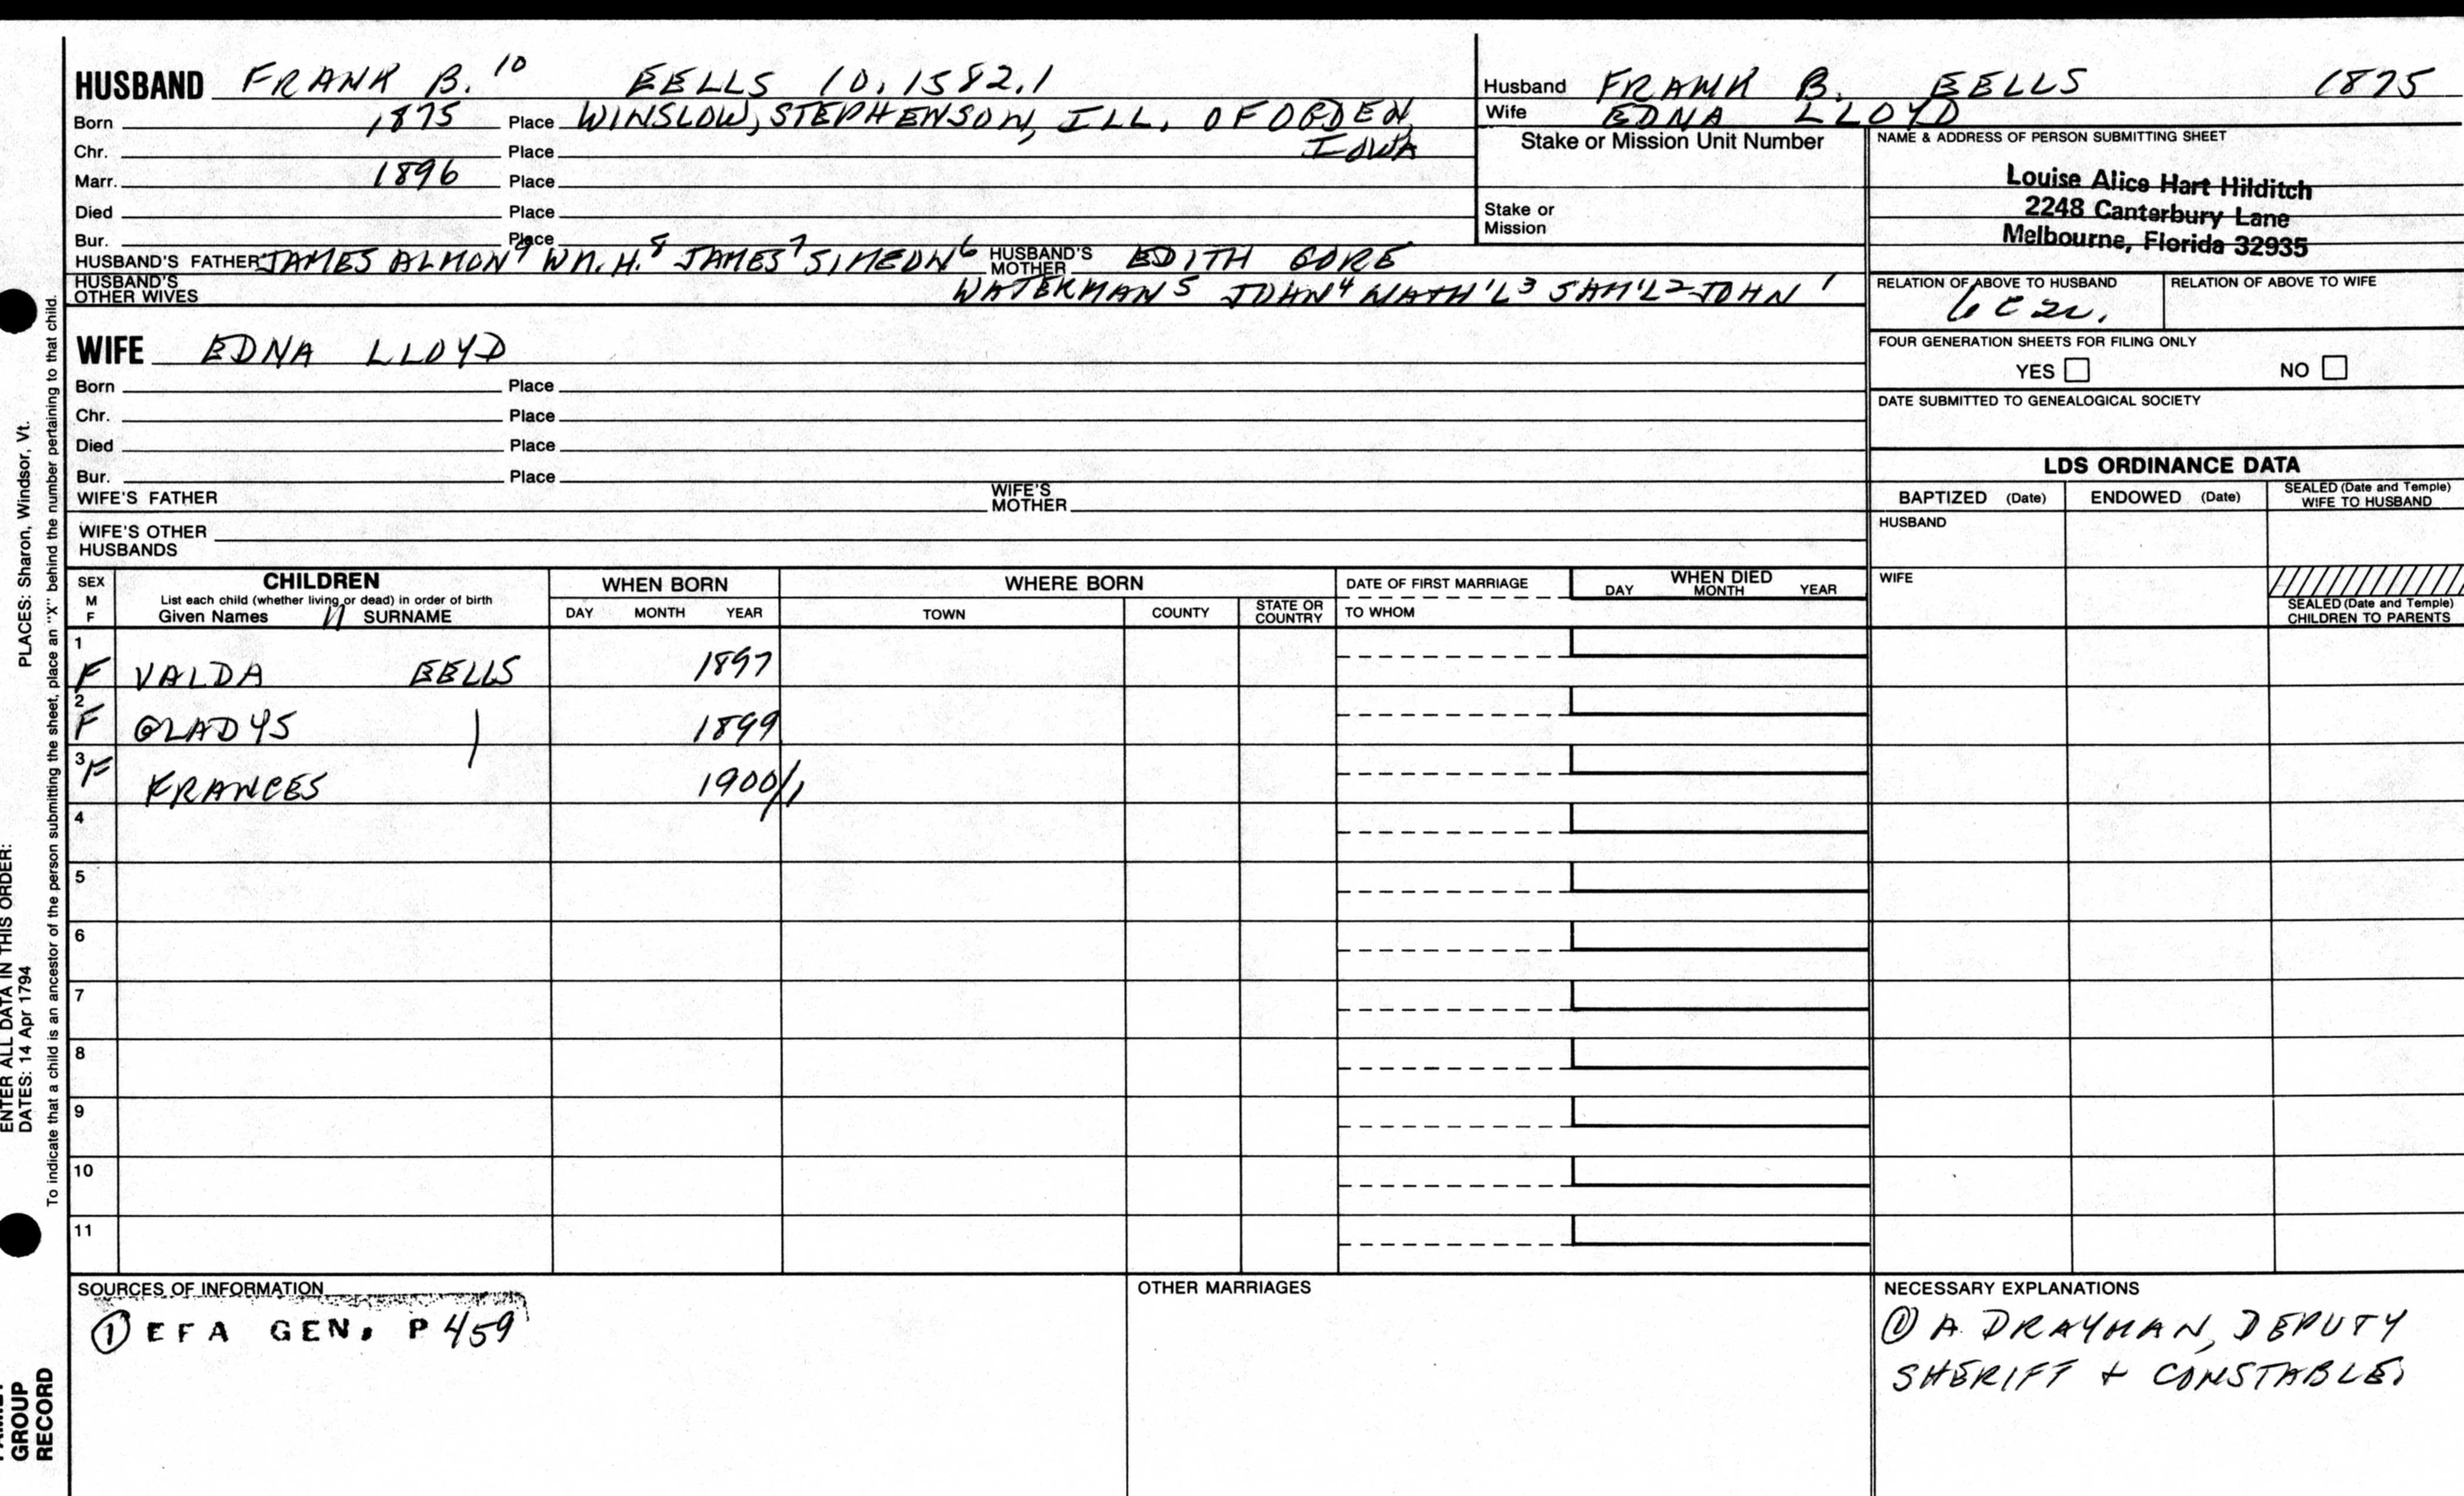 HUSBAND FRANK B. 10 EELLS 10.1582.1
Born 1875 Place WINSLOW, STEPHENSON, ILL. OF OGDEN,
Chr. Place IOWA
Marr. 1896 Place
Died Place
Bur. Place
HUSBAND'S FATHER JAMES ALMON 9 WM. H. 8 JAMES 7 SIMEON 6 HUSBAND'S MOTHER EDITH GORE
HUSBAND'S OTHER WIVES WATERMAN 5 JOHN 4 NATH'L 3 SAM'L 2 JOHN 1
WIFE EDNA LLOYD
Born Place
Chr. Place
Died Place
Bur. Place
WIFE'S FATHER WIFE'S MOTHER
WIFE'S OTHER HUSBANDS
Husband FRANK B. EELLS 1875
Wife EDNA LLOYD
Stake or Mission Unit Number
Stake or Mission
NAME & ADDRESS OF PERSON SUBMITTING SHEET
Louise Alice Hart Hilditch
2248 Canterbury Lane
Melbourne, Florida 32935
RELATION OF ABOVE TO HUSBAND RELATION OF ABOVE TO WIFE
6C2R.
FOUR GENERATION SHEETS FOR FILING ONLY
YES NO
DATE SUBMITTED TO GENEALOGICAL SOCIETY
LDS ORDINANCE DATA
BAPTIZED (Date) ENDOWED (Date) SEALED (Date and Temple) WIFE TO HUSBAND
HUSBAND
WIFE
SEALED (Date and Temple) CHILDREN TO PARENTS
SEX M F
CHILDREN
List each child (whether living or dead) in order of birth
Given Names 11 SURNAME
WHEN BORN
DAY MONTH YEAR
WHERE BORN
TOWN COUNTY STATE OR COUNTRY
DATE OF FIRST MARRIAGE
TO WHOM
WHEN DIED
DAY MONTH YEAR
1
F VALDA EELLS 1897
2
F GLADYS 1899
3
F FRANCES 1900/1
4
5
6
7
8
9
10
11
SOURCES OF INFORMATION
① EFA GEN. P 459
OTHER MARRIAGES
NECESSARY EXPLANATIONS
① A DRAYMAN, DEPUTY
SHERIFF + CONSTABLE.
PLACES: Sharon, Windsor, Vt.
To indicate that a child is an ancestor of the person submitting the sheet, place an "X" behind the number pertaining to that child.
ENTER ALL DATA IN THIS ORDER:
DATES: 14 Apr 1794
GROUP
RECORD